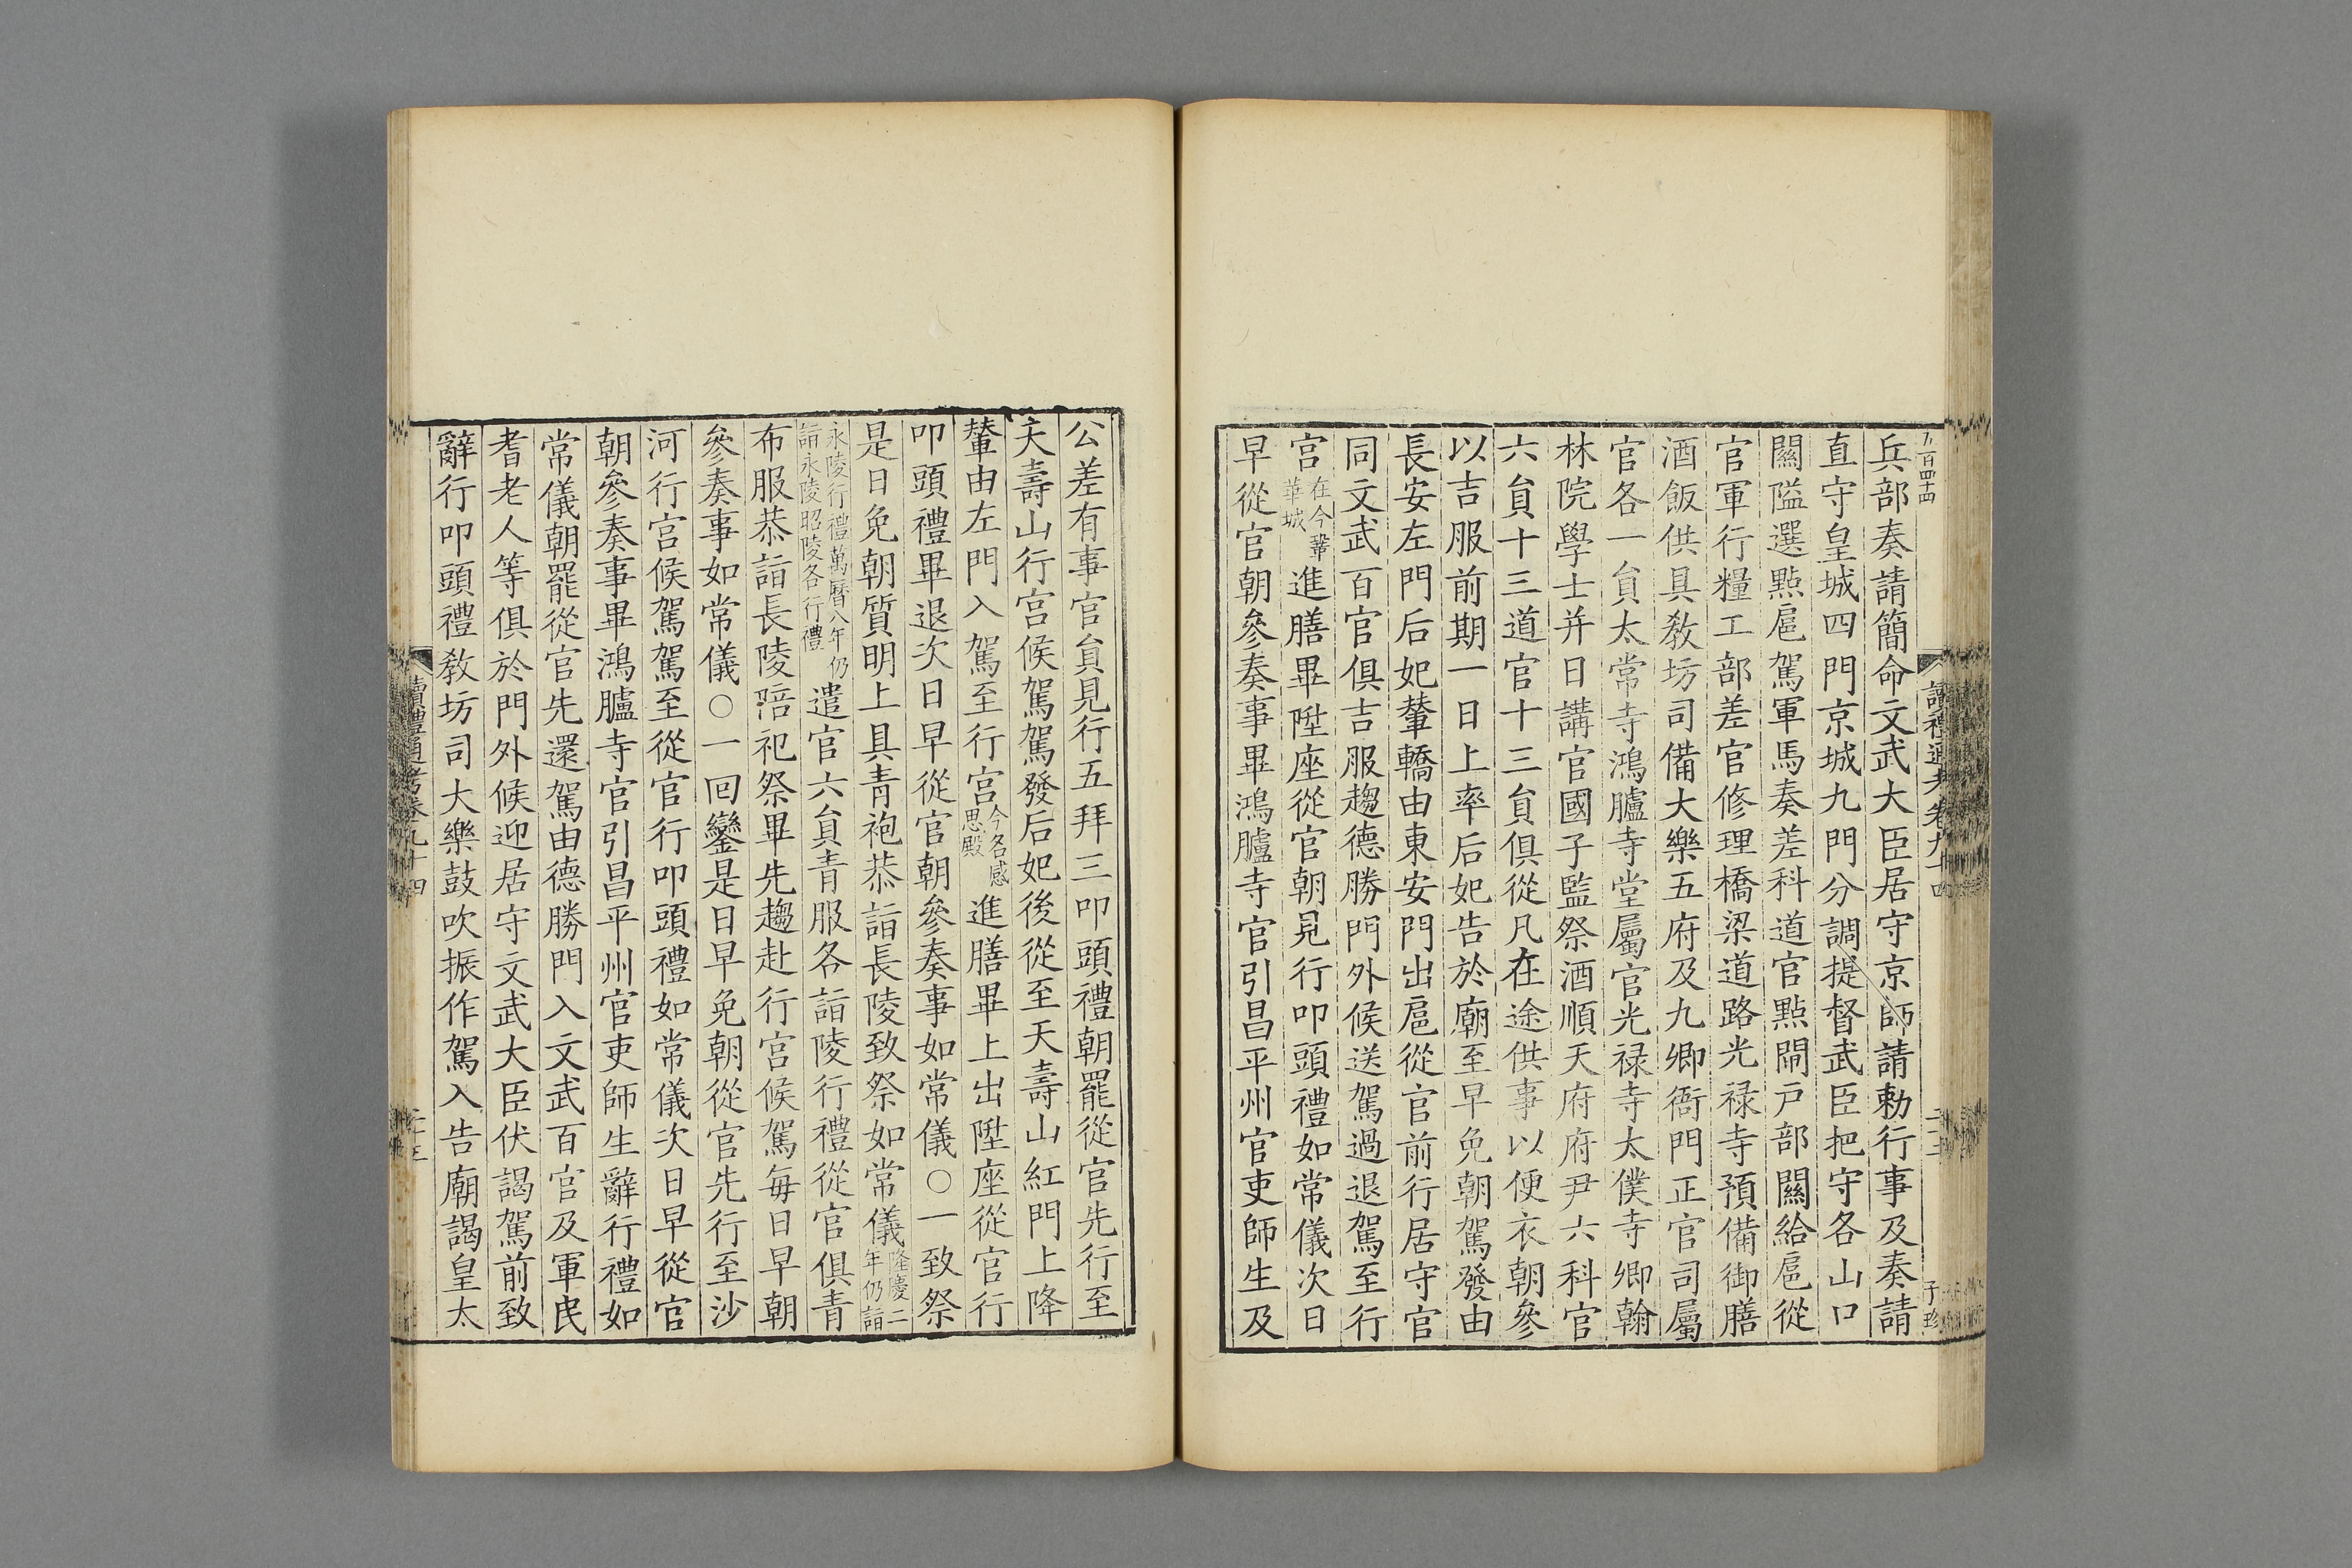 兵部奏請簡命文武大臣居守京師請勅行事及奏請
直守皇城四門京城九門分調提督武臣把守各山口
關隘選點扈駕軍馬奏差科道官點閘戶部關給扈從
官軍行糧工部差官修理橋梁道路光禄寺預備御膳
酒飯供具敎坊司備大樂五府及九卿衙門正官司屬
官各一貟太常寺鴻臚寺堂屬官光禄寺太僕寺卿翰
林院學士并日講官國子監祭酒順天府府尹六科官
六貟十三道官十三貟俱從凡在途供事以便衣朝參
以吉服前期一日上率后妃告於廟至早免朝駕發由
長安左門后妃輦轎由東安門出扈從官前行居守官
同文武百官俱吉服趨德勝門外候送駕過退駕至行
宮在今鞏華城進膳畢陞座從官朝見行叩頭禮如常儀次日
早從官朝參奏事畢鴻臚寺官引昌平州官吏師生及
公差有事官貟見行五拜三叩頭禮朝罷從官先行至
天壽山行宮候駕駕發后妃後從至天壽山紅門上降
輦由左門入駕至行宮今名感思殿進膳畢上出陞座從官行
叩頭禮畢退次日早從官朝參奏事如常儀○一致祭
是日免朝質明上具青袍恭詣長陵致祭如常儀隆慶二年仍詣
永陵行禮萬曆八年仍詣永陵昭陵各行禮遣官六貟青服各詣陵行禮從官俱青
布服恭詣長陵陪祀祭畢先趨赴行宮候駕每日早朝
參奏事如常儀○一回鑾是日早免朝從官先行至沙
河行宮候駕駕至從官行叩頭禮如常儀次日早從官
朝參奏事畢鴻臚寺官引昌平州官吏師生辭行禮如
常儀朝罷從官先還駕由德勝門入文武百官及軍民
耆老人等俱於門外候迎居守文武大臣伏謁駕前致
辭行叩頭禮敎坊司大樂鼓吹振作駕入告廟謁皇太
讀禮通考卷九十四